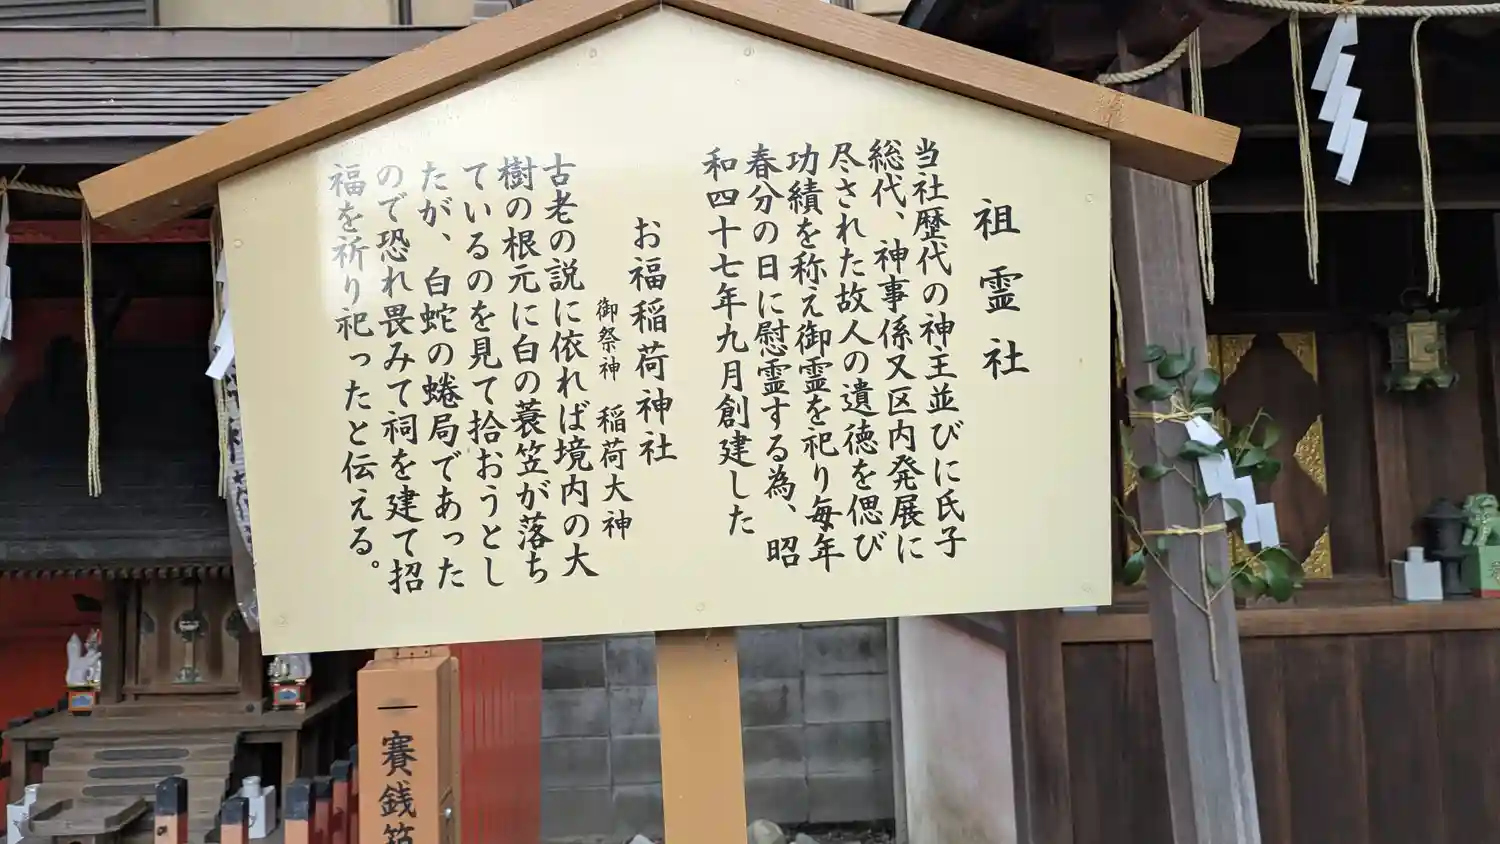 祖霊社
当社歴代の神主並びに氏子
総代、神事係又区内発展に
尽された故人の遺徳を偲び
功績を称え御霊を祀り毎年
春分の日に慰霊する為、昭
和四十七年九月創建した
お福稲荷神社
御祭神 稲荷大神
古老の説に依れば境内の大
樹の根元に白の蓑笠が落ち
ているのを見て拾おうとし
たが、白蛇の蜷局であった
ので恐れ畏みて祠を建て招
福を祈り祀ったと伝える。
賽銭箱